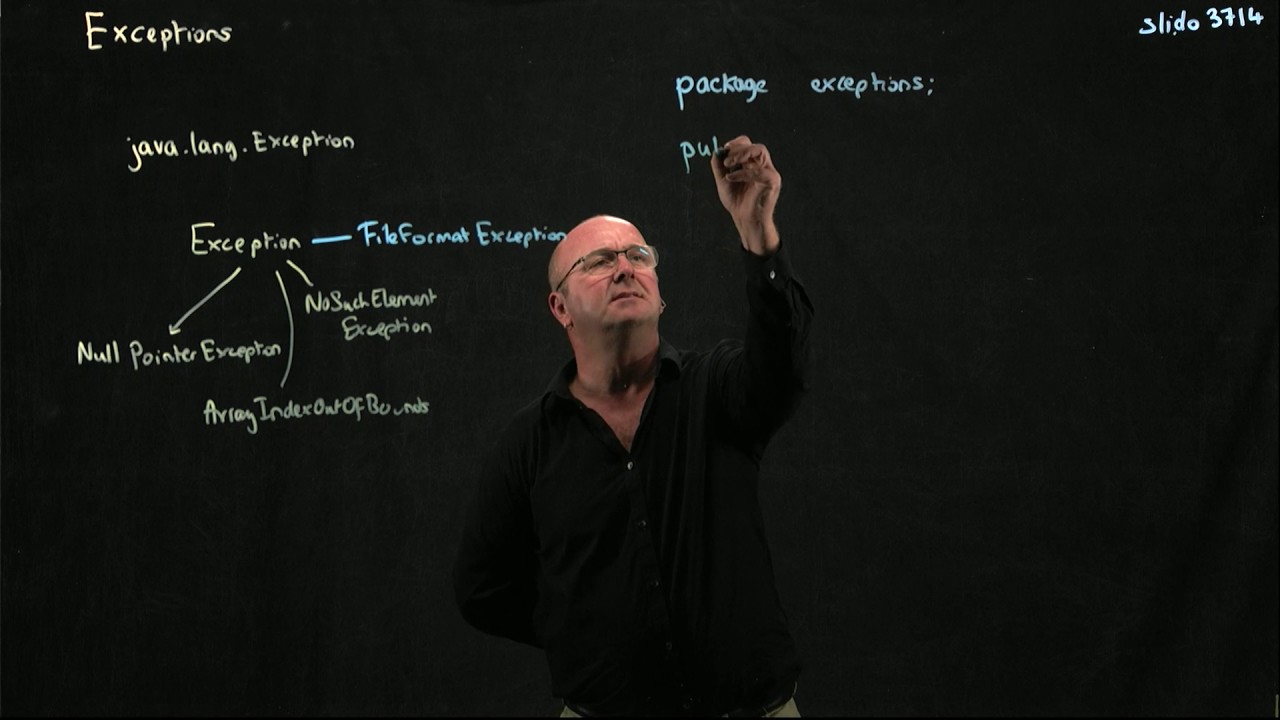 Exceptions
slido 3714
package exceptions;
java.lang.Exception
Exception
FileFormatException
NoSuchElement
Exception
Null PointerException
ArrayIndexOutOfBounds